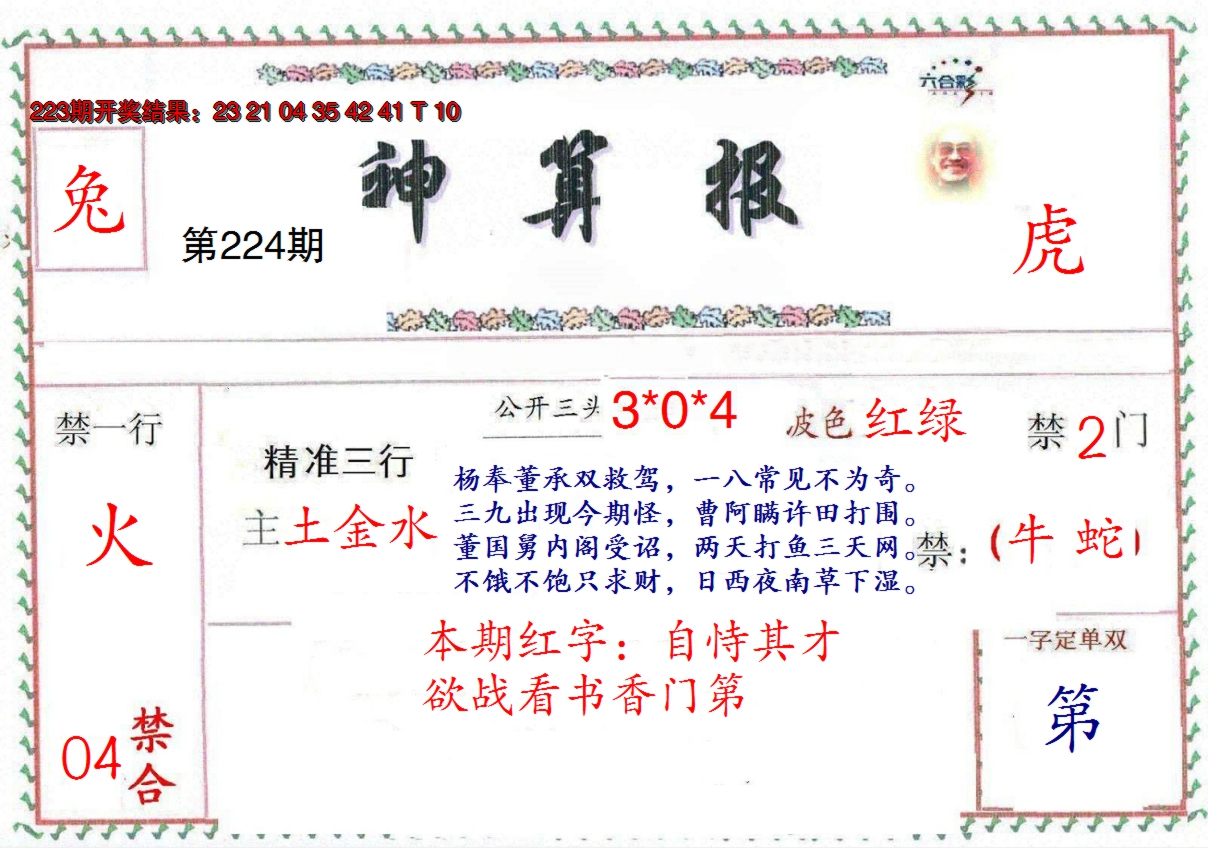 六合彩
223期开奖结果：23 21 04 35 42 41 T 10
神算报
兔
第224期
虎
公开三头 3*0*4
波色 红绿
禁一行
火
精准三行
主土金水
禁2门
禁：（牛 蛇）
杨奉董承双救驾，一八常见不为奇。
三九出现今期怪，曹阿瞒许田打围。
董国舅内阁受诏，两天打鱼三天网。
不饿不饱只求财，日西夜南草下湿。
本期红字：自恃其才
欲战看书香门第
一字定单双
第
04禁合